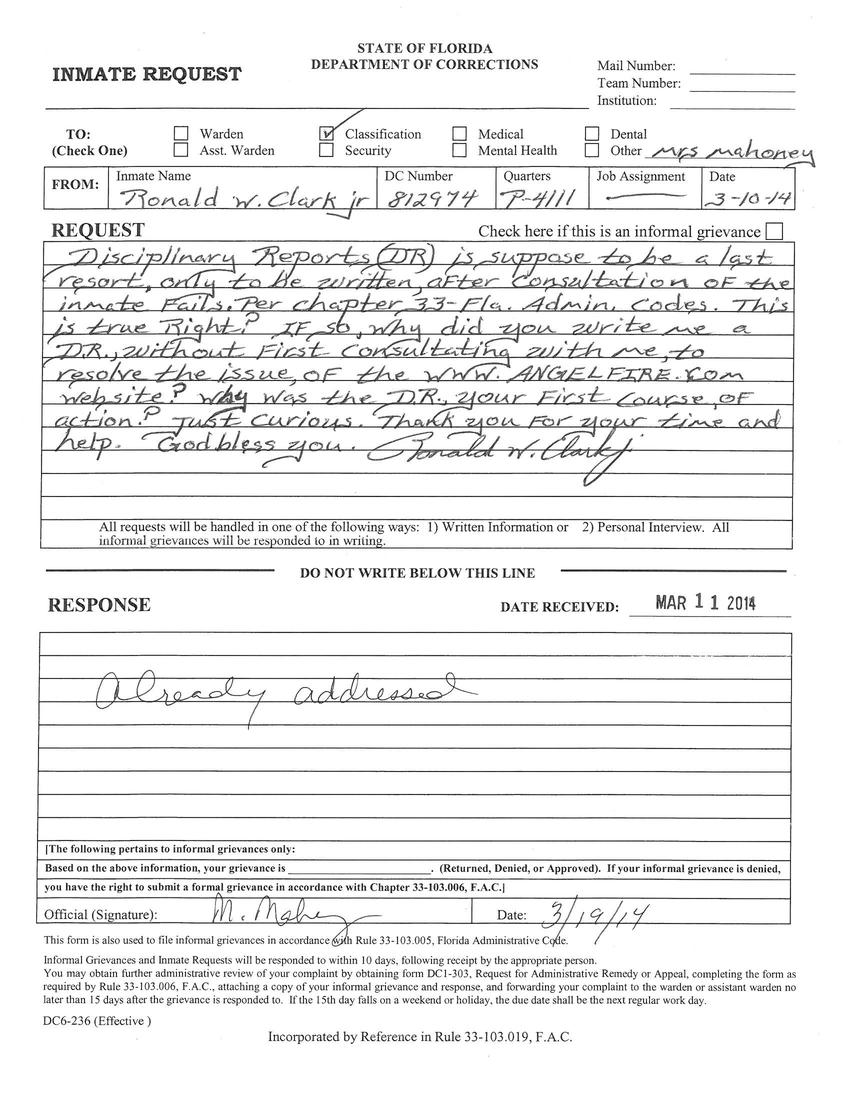 STATE OF FLORIDA
DEPARTMENT OF CORRECTIONS
INMATE REQUEST
Mail Number:
Team Number:
Institution:
TO:
(Check One)
Warden
Classification
Medical
Dental
Asst. Warden
Security
Mental Health
Other Mrs Mahoney
FROM:
Inmate Name
DC Number
Quarters
Job Assignment
Date
Ronald W. Clark jr
812974
P-4111
3-10-14
REQUEST
Check here if this is an informal grievance
Disciplinary Reports (DR) is suppose to be a last
resort, only to be written, after Consultation of the
inmate Fails. Per chapter 33-Fla. Admin. Codes. This
is true Right? If so, why did you write me a
D.R., without First Consultating with me, to
resolve the issue, of the WWW. ANGELFIRE.Com
website? Why was the D.R., your First Course, of
action? Just Curious. Thank you for your time and
help. God bless you. Ronald W. Clark j
All requests will be handled in one of the following ways: 1) Written Information or 2) Personal Interview. All
informal grievances will be responded to in writing.
DO NOT WRITE BELOW THIS LINE
RESPONSE
DATE RECEIVED: MAR 11 2014
Already addressed
[The following pertains to informal grievances only:
Based on the above information, your grievance is ____________. (Returned, Denied, or Approved). If your informal grievance is denied,
you have the right to submit a formal grievance in accordance with Chapter 33-103.006, F.A.C.]
Official (Signature):
Date: 3/19/14
This form is also used to file informal grievances in accordance with Rule 33-103.005, Florida Administrative Code.
Informal Grievances and Inmate Requests will be responded to within 10 days, following receipt by the appropriate person.
You may obtain further administrative review of your complaint by obtaining form DC1-303, Request for Administrative Remedy or Appeal, completing the form as
required by Rule 33-103.006, F.A.C., attaching a copy of your informal grievance and response, and forwarding your complaint to the warden or assistant warden no
later than 15 days after the grievance is responded to. If the 15th day falls on a weekend or holiday, the due date shall be the next regular work day.
DC6-236 (Effective )
Incorporated by Reference in Rule 33-103.019, F.A.C.